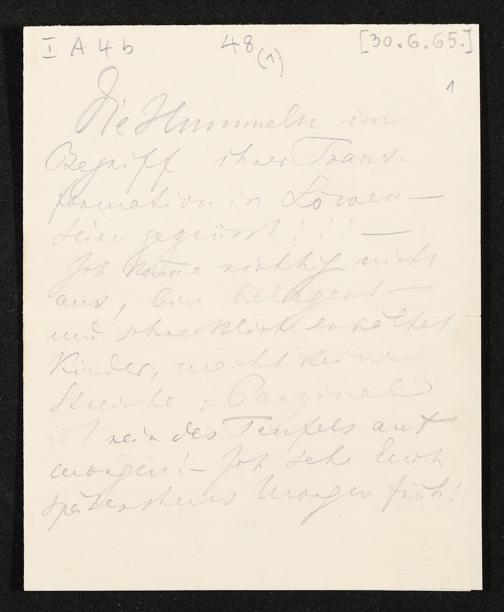 I A 4 b 48 (1) [30.6.65.]
1
Die Hummeln im
Begriff ihrer Trans-
formation in Löwen —
seien gegrüsst!!! —
Ich komme richtig nicht
aus, bin belagert —
und schrecklich erkältet
Kinder, macht keine
Streiche: Parzival
ist rein des Teufels auf
morgen! — Ich sehe Euch
spätestens Morgen früh!